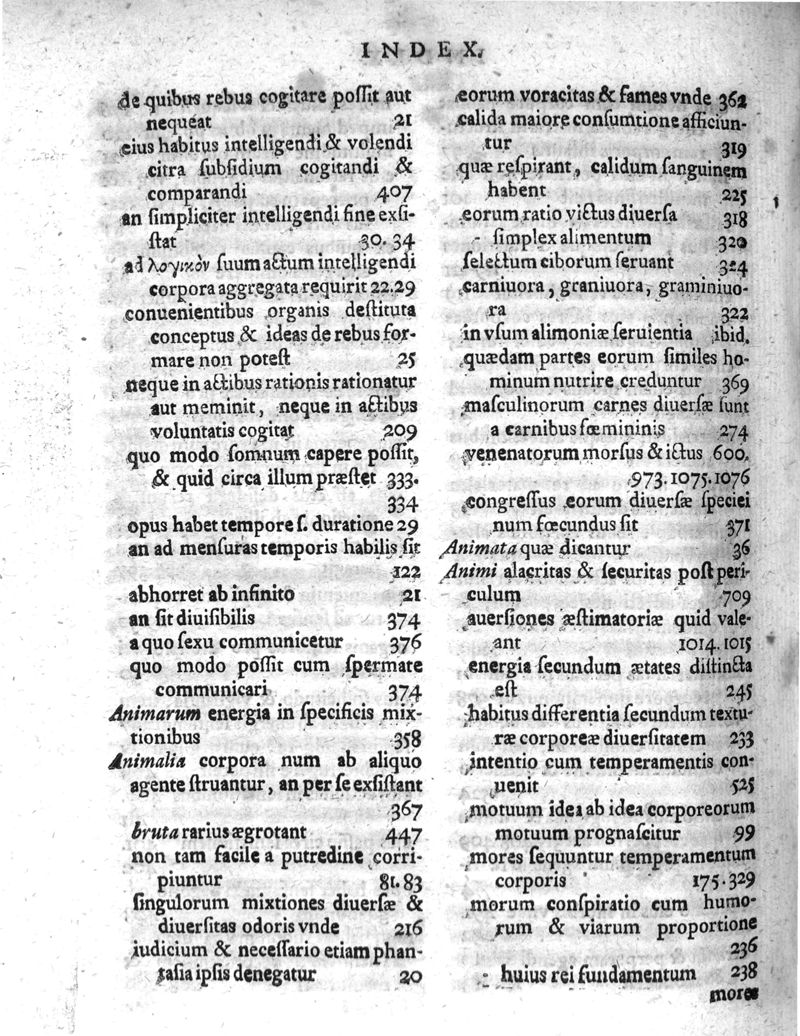 INDEX.
de quibus rebus cogitare poſſit aut
nequeat 21
eius habitus intelligendi & volendi
citra ſubſidium cogitandi &
comparandi 407
an ſimpliciter intelligendi fine exſi-
ſtat 30. 34
ad λογικὸν ſuum actum intelligendi
corpora aggregata requirit 22.29
conuenientibus organis deſtituta
conceptus & ideas de rebus for-
mare non poteſt 25
neque in actibus rationis rationatur
aut meminit, neque in actibus
voluntatis cogitat 209
quo modo ſomnum capere poſſit,
& quid circa illum præſtet 333.
334
opus habet tempore ſ. duratione 29
an ad menſuras temporis habilis ſit
122
abhorret ab infinito 21
an ſit diuiſibilis 374
a quo ſexu communicetur 376
quo modo poſſit cum ſpermate
communicari 374
Animarum energia in ſpecificis mix-
tionibus 358
Animalia corpora num ab aliquo
agente ſtruantur, an per ſe exſiſtant
367
bruta rarius ægrotant 447
non tam facile a putredine corri-
piuntur 81.83
ſingulorum mixtiones diuerſæ &
diuerſitas odoris vnde 216
iudicium & neceſſario etiam phan-
taſia ipſis denegatur 20
eorum voracitas & fames vnde 362
calida maiore conſumtione afficiun-
tur 319
quæ reſpirant, calidum ſanguinem
habent 225
eorum ratio victus diuerſa 318
- ſimplex alimentum 320
ſelectum ciborum ſeruant 324
carniuora, graniuora, graminiuo-
ra 322
in vſum alimoniæ ſeruientia ibid.
quædam partes eorum ſimiles ho-
minum nutrire creduntur 369
maſculinorum carnes diuerſæ ſunt
a carnibus fœmininis 274
venenatorum morſus & ictus 600.
973.1075.1076
congreſſus eorum diuerſæ ſpeciei
num fœcundus ſit 371
Animata quæ dicantur 36
Animi alacritas & ſecuritas poſt peri-
culum 709
auerſiones æſtimatoriæ quid vale-
ant 1014.1015
energia ſecundum ætates diſtincta
eſt 245
habitus differentia ſecundum textu-
ræ corporeæ diuerſitatem 233
intentio cum temperamentis con-
uenit 525
motuum idea ab idea corporeorum
motuum prognaſcitur 99
mores ſequuntur temperamentum
corporis 175.329
morum conſpiratio cum humo-
rum & viarum proportione
236
- huius rei fundamentum 238
mores